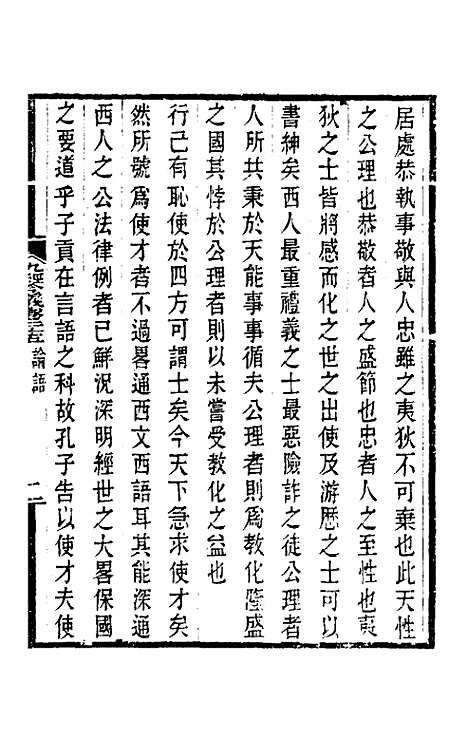 居處恭執事敬與人忠雖之夷狄不可棄也此天性
之公理也恭敬者人之盛節也忠者人之至性也夷
狄之士皆將感而化之世之出使及游歷之士可以
書紳矣西人最重禮義之士最惡險詐之徒公理者
人所共秉於天能事事循夫公理者則爲教化隆盛
之國其悖於公理者則以未嘗受教化之益也
行己有恥使於四方可謂士矣今天下急求使才矣
然所號爲使才者不過畧通西文西語耳其能深通
西人之公法律例者已鮮況深明經世之大畧保國
之要道乎子貢在言語之科故孔子告以使才夫使
九經今義卷二十五 論語 二